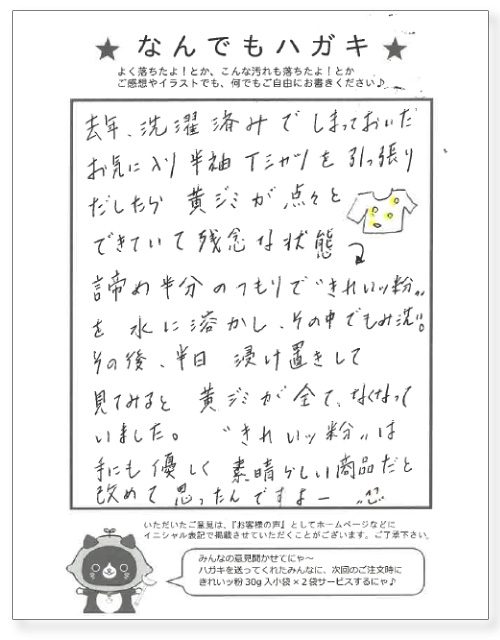 ★ なんでもハガキ ★
よく落ちたよ！とか、こんな汚れも落ちたよ！とか
ご感想やイラストでも、何でもご自由にお書きください♪
去年、洗濯済みでしまっておいた
お気に入り半袖Tシャツを引っ張り
だしたら 黄ジミが点々と
できていて残念な状態
諦め半分のつもりで“きれいッ粉”
を水に溶かし、その中でもみ洗い。
その後、半日 浸け置きして
見てみると 黄ジミが全て、なくなって
いました。 “きれいッ粉”は
手にも優しく 素晴らしい商品だと
改めて思ったんですよー
いただいたご意見は、『お客様の声』としてホームページなどに
イニシャル表記で掲載させていただくことがございます。ご了承下さい。
みんなの意見聞かせてにゃ〜
ハガキを送ってくれたみんなに、次回のご注文時に
きれいッ粉30g入小袋×2袋サービスするにゃ♪